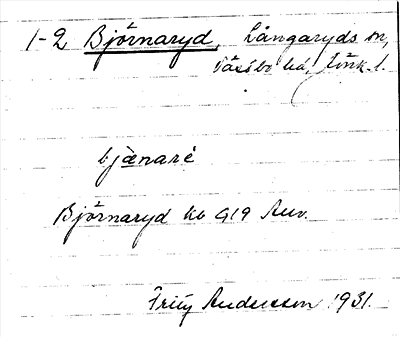 1-2 Björnaryd, Långaryds sn,
Västbo hd, Jönk. l.
bjæ̀naré
Björnaryd kb G19 Anv.
Fritz Andersson 1931.